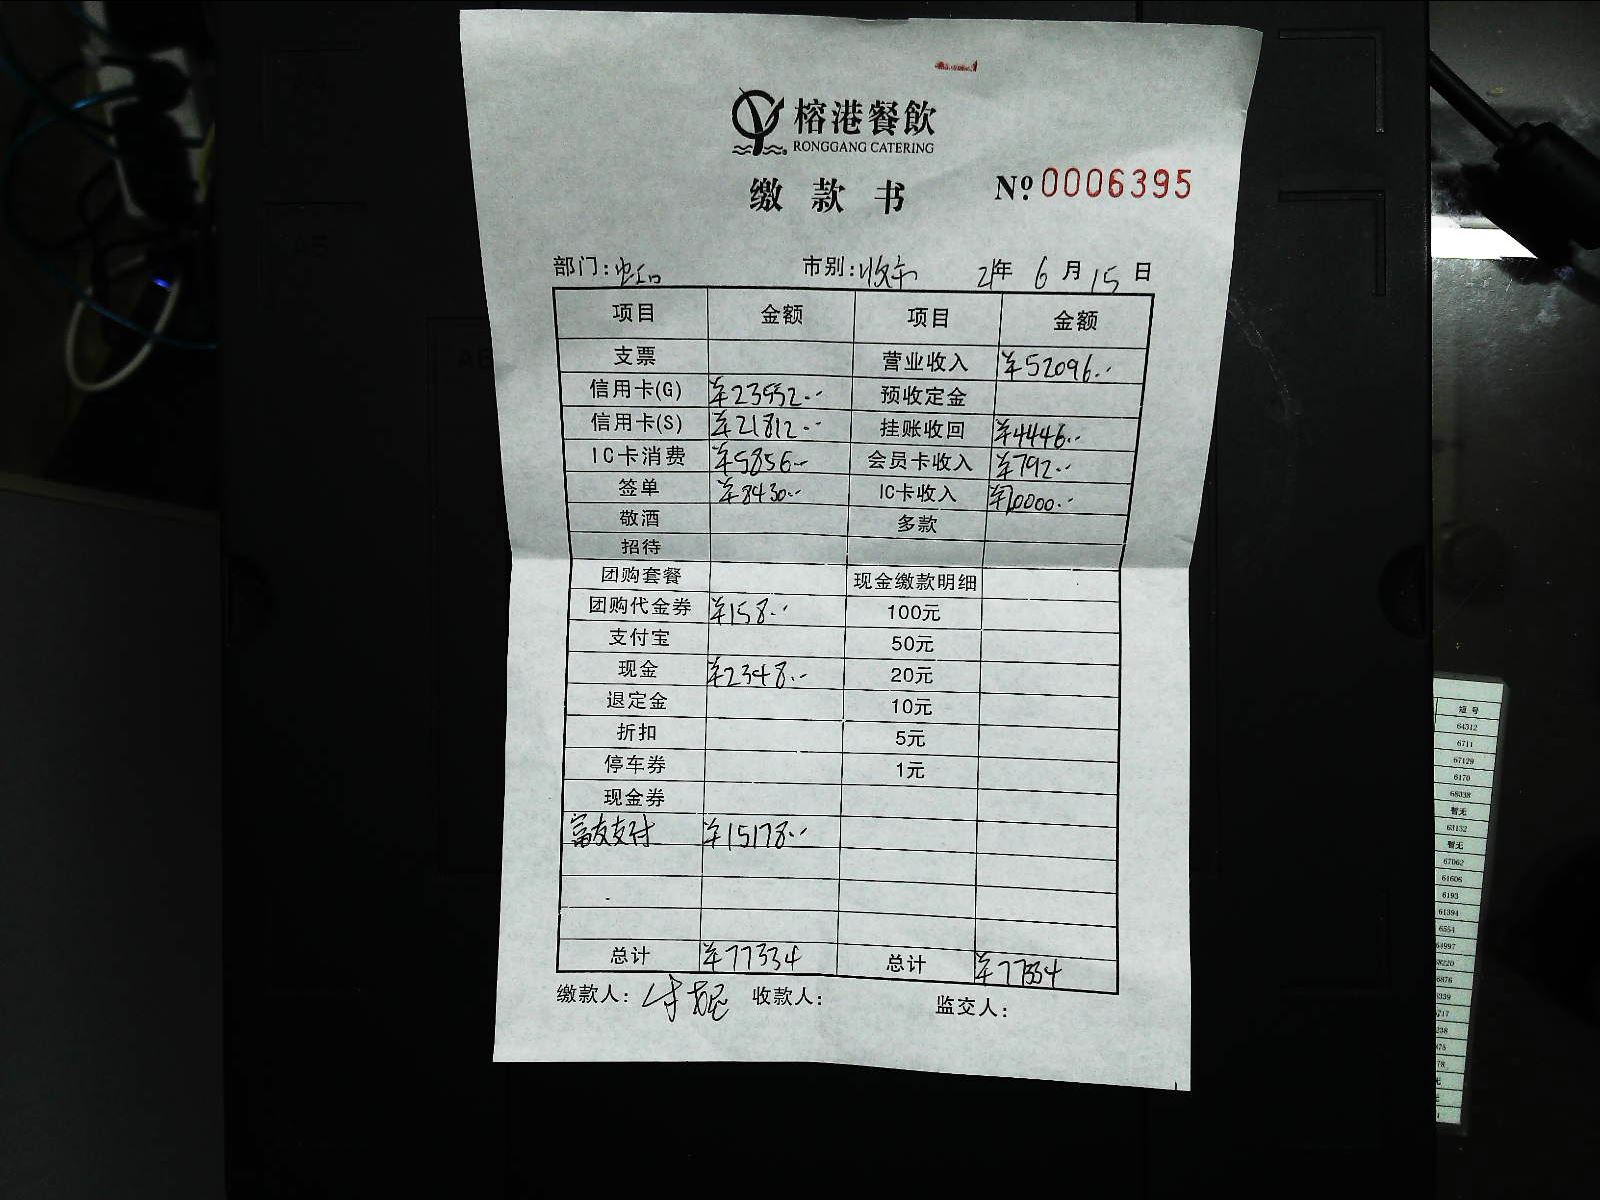 榕港餐飲
RONGGANG CATERING
缴款书 Nº 0006395
部门: 市别:收市 21年 6月 15日
项目 金额 项目 金额
支票 营业收入 ¥52096.--
信用卡(G) ¥23552.-- 预收定金
信用卡(S) ¥21812.-- 挂账收回 ¥4446.--
IC卡消费 ¥5856.-- 会员卡收入 ¥792.--
签单 ¥8430.-- IC卡收入 ¥10000.--
敬酒 多款
招待
团购套餐 现金缴款明细
团购代金券 ¥158.-- 100元
支付宝 50元
现金 ¥2348.-- 20元
退定金 10元
折扣 5元
停车券 1元
现金券
富友支付 ¥15178.--
总计 ¥77334 总计 ¥77334
缴款人: 收款人: 监交人:
短号
64312
6711
67129
6170
68038
暂无
63132
暂无
67062
61606
6193
61394
6554